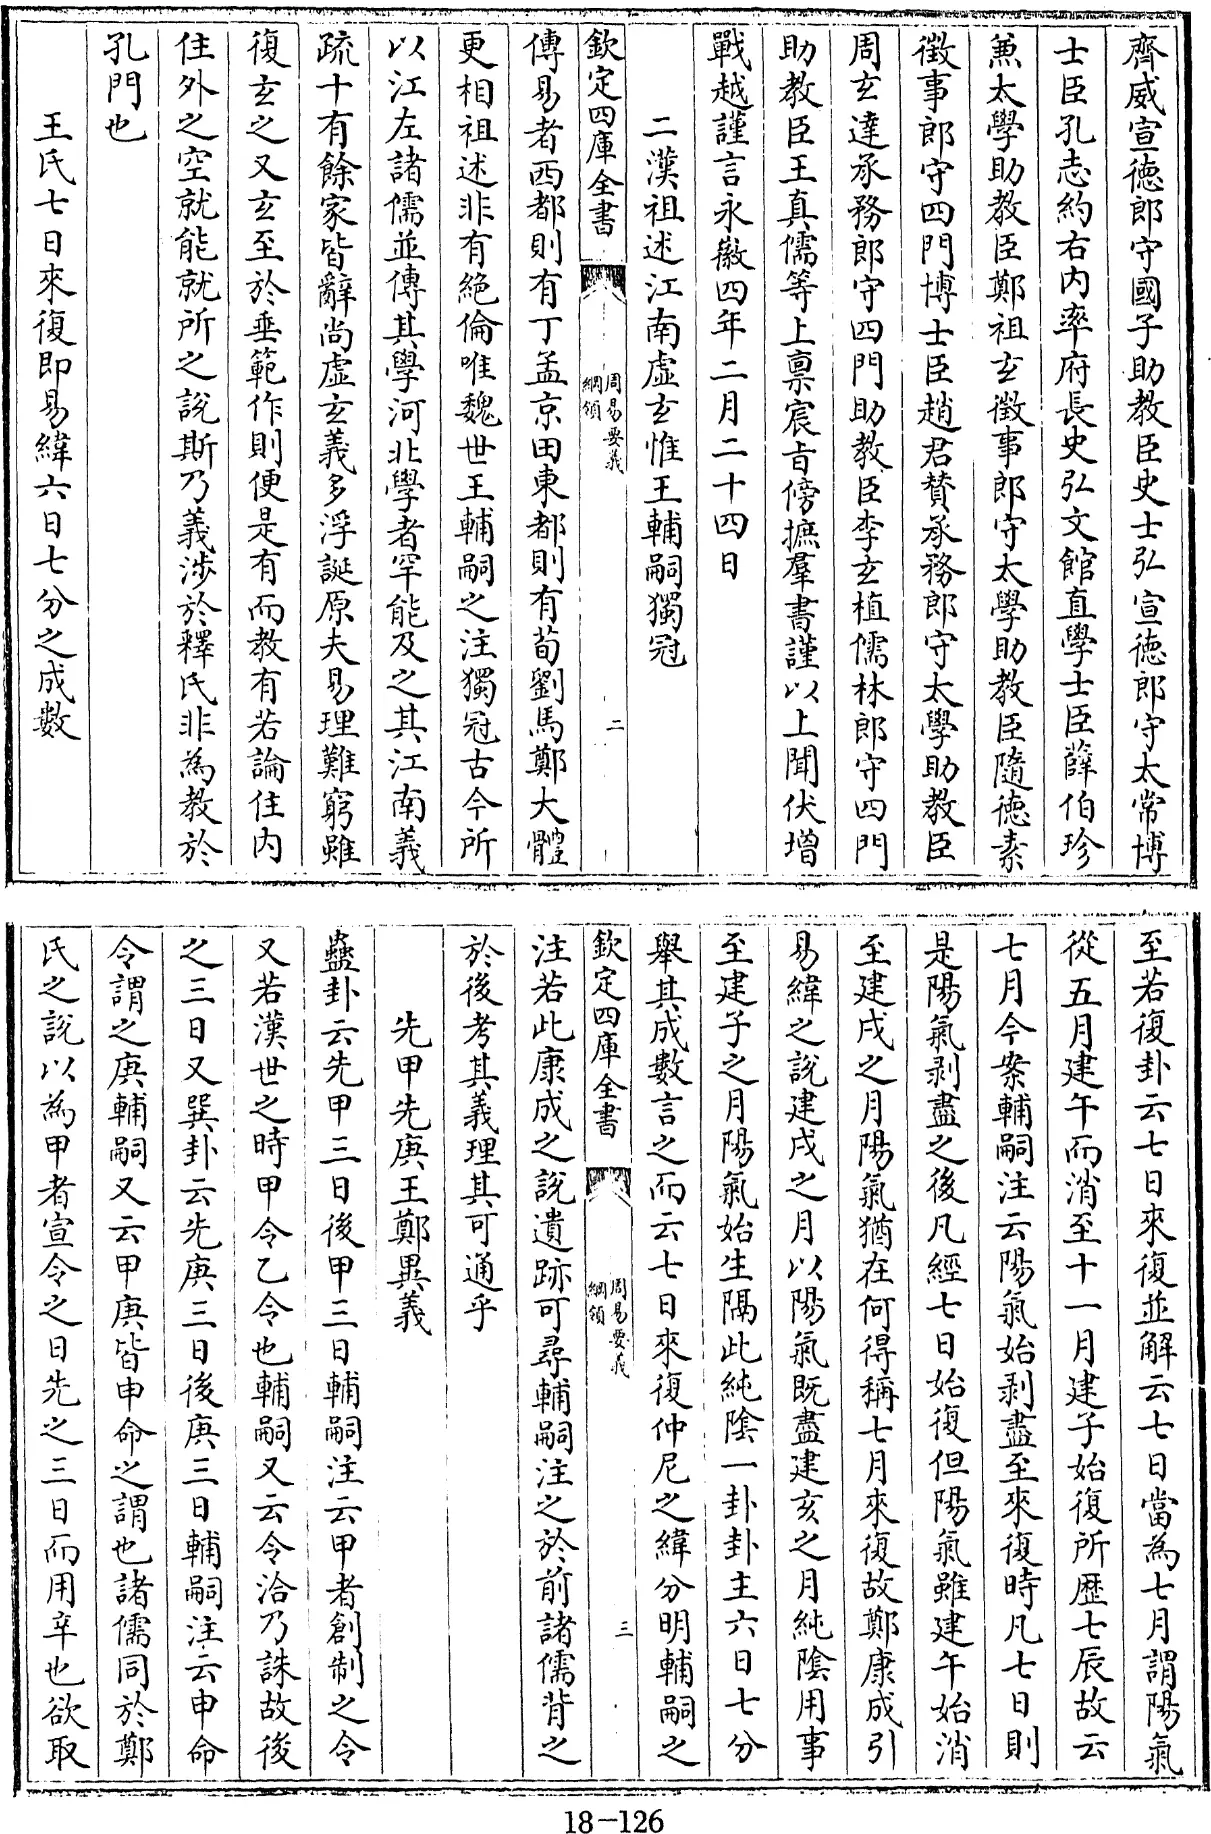 齊威宣德郎守國子助教臣史士弘宣德郎守太常博
士臣孔志約右内率府長史弘文館直學士臣薛伯珍
兼太學助教臣鄭祖玄徵事郎守太學助教臣隨德素
徵事郎守四門博士臣趙君贊承務郎守太學助教臣
周玄達承務郎守四門助教臣李玄植儒林郎守四門
助教臣王真儒等上禀宸㫖傍摭羣書謹以上聞伏增
戰越謹言永徽四年二月二十四日
二漢祖述江南虛玄惟王輔嗣獨冠
欽定四庫全書
周易要義
綱領
二
傳易者西都則有丁孟京田東都則有荀劉馬鄭大體
更相祖述非有絶倫唯魏世王輔嗣之注獨冠古今所
以江左諸儒並傳其學河北學者罕能及之其江南義
疏十有餘家皆辭尚虛玄義多浮誕原夫易理難窮雖
復玄之又玄至於垂範作則便是有而教有若論住内
住外之空就能就所之説斯乃義涉於釋氏非為教於
孔門也
王氏七日來復即易緯六日七分之成數
至若復卦云七日來復並解云七日當為七月謂陽氣
從五月建午而消至十一月建子始復所歴七辰故云
七月今案輔嗣注云陽氣始剥盡至來復時凡七日則
是陽氣剥盡之後凡經七日始復但陽氣雖建午始消
至建戌之月陽氣猶在何得稱七月來復故鄭康成引
易緯之説建戌之月以陽氣既盡建亥之月純陰用事
至建子之月陽氣始生隔此純陰一卦卦主六日七分
舉其成數言之而云七日來復仲尼之緯分明輔嗣之
欽定四庫全書
周易要義
綱領
三
注若此康成之説遺跡可尋輔嗣注之於前諸儒背之
於後考其義理其可通乎
先甲先庚王鄭異義
蠱卦云先甲三日後甲三日輔嗣注云甲者創制之令
又若漢世之時甲令乙令也輔嗣又云令洽乃誅故後
之三日又巽卦云先庚三日後庚三日輔嗣注云申命
令謂之庚輔嗣又云甲庚皆申命之謂也諸儒同於鄭
氏之説以為甲者宣令之日先之三日而用辛也欲取
18-126